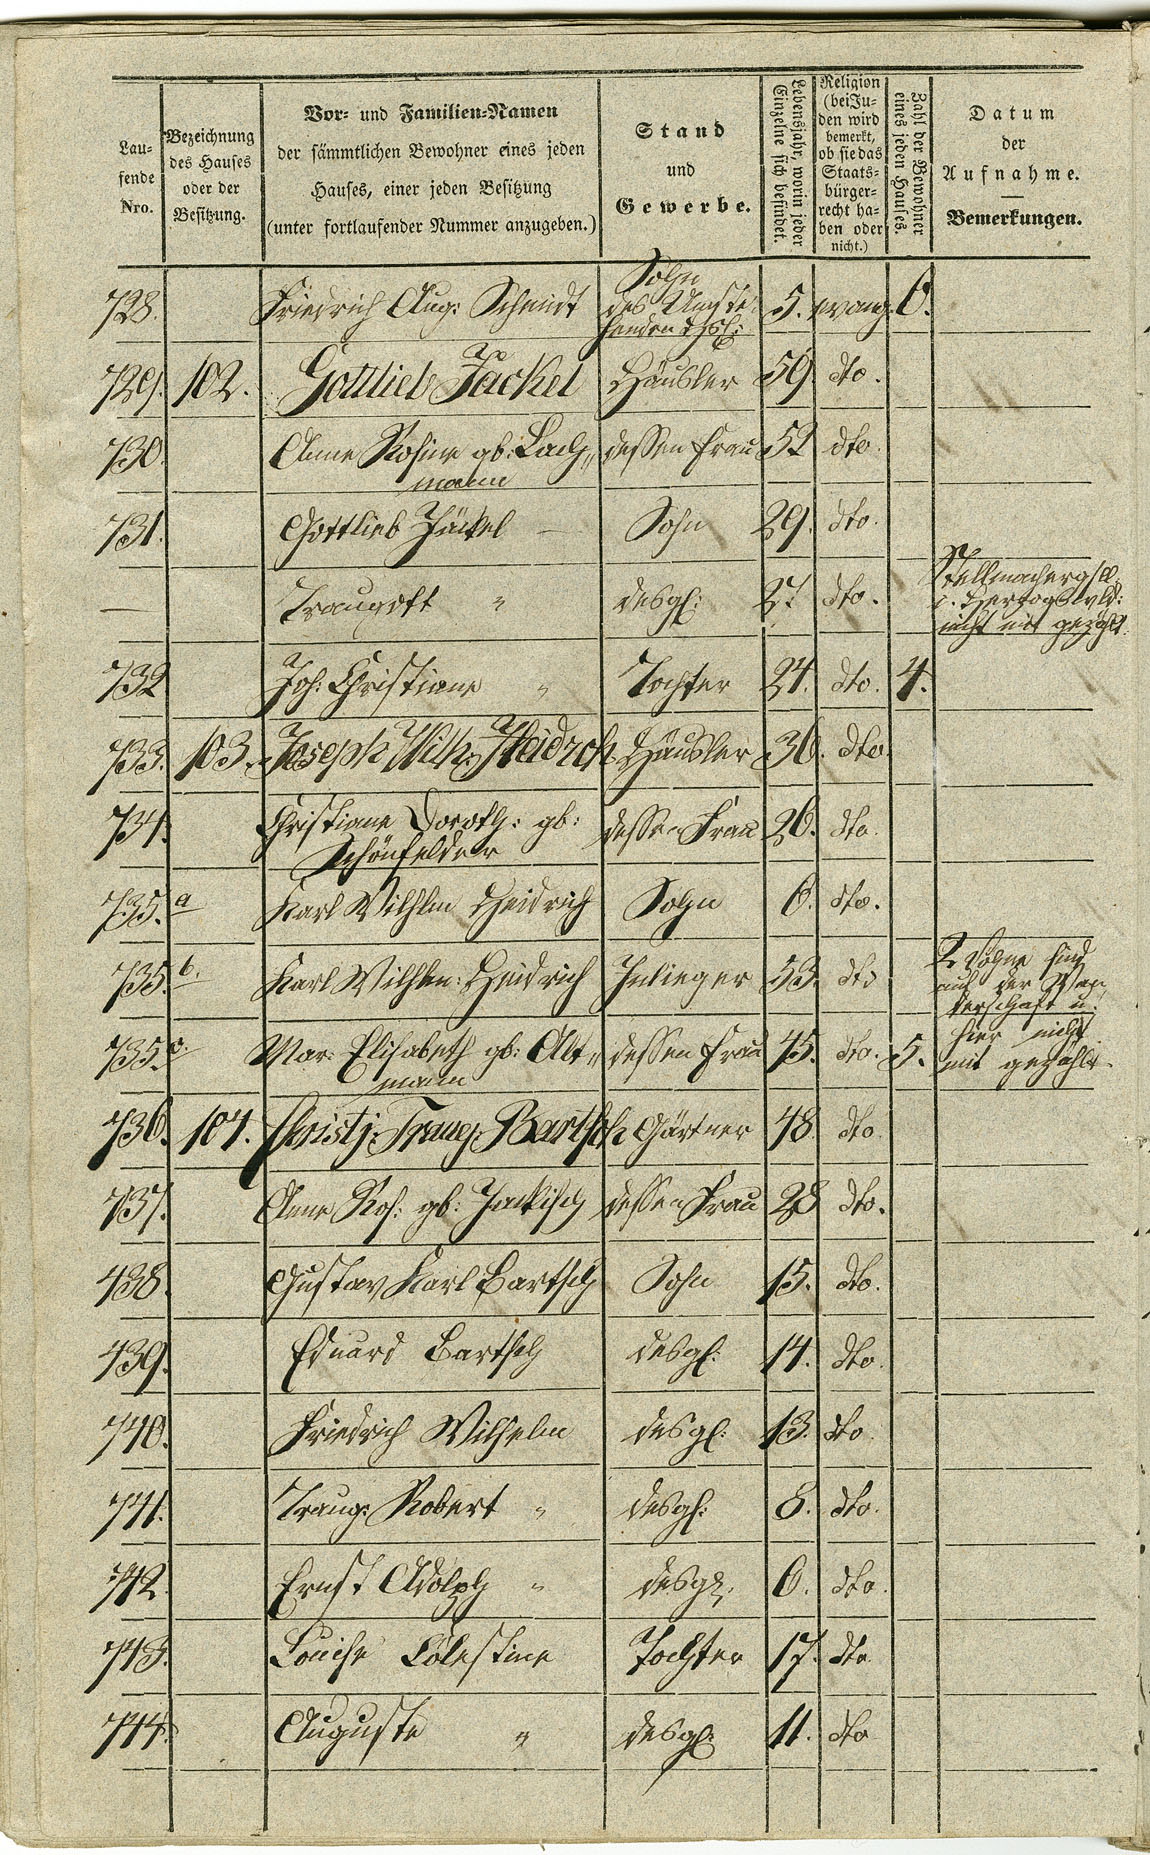 Lau-
fende
Nro.
Bezeichnung
des Hauses
oder der
Besitzung.
Vor- und Familien-Namen
der sämmtlichen Bewohner eines jeden
Hauses, einer jeden Besitzung
(unter fortlaufender Nummer anzugeben.)
Stand
und
Gewerbe.
Lebensjahr, worin jeder
Einzelne sich befindet.
Religion
(bei Ju-
den wird
bemerkt,
ob sie das
Staats-
bürger-
recht ha-
ben oder
nicht.)
Zahl der Bewohner
eines jeden Hauses.
Datum
der
Aufnahme.
Bemerkungen.
728. Friedrich Aug: Schmidt Sohn des 5. evang. 6.
729. 102. Gottlieb Jäckel Häusler 59. dto.
730. Anne Rosine gb: Lach„ dessen Frau 52 dto.
mann
731. Gottlieb Jäckel Sohn 29. dto.
— Traugott " desgl: 27. dto. Stellmachergsll.
i. Herzogswld:
nicht mit gezählt.
732 Joh: Christiane " Tochter 24. dto. 4.
733. 103. Joseph Wilh: Heidrch Häusler 36. dto.
734. Christiane Doroth: gb: dessen Frau 26. dto.
Schönfelder
735. a Karl Wilhlm Heidrich Sohn 6. dto.
735. b. Karl Wilhlm: Heidrich Inlieger 53. dto 2 Söhne sind
auf der Wan„
derschaft u.
735. c. Mar: Elisabeth gb: Alt„ dessen Frau 45. dto. 5. hier nicht
mann mit gezählt.
736. 104. Christ: Traug: Bartsch Gärtner 48. dto.
737. Anne Ros: gb: Jackisch dessen Frau 28 dto.
438. Gustav Karl Bartsch Sohn 15. dto.
439. Eduard Bartsch desgl: 14. dto.
740. Friedrich Wilhelm desgl: 13. dto.
741. Traug: Robert " desgl: 8. dto.
742. Ernst Adolph " desgl. 6. dto.
743. Louise Cölestine Tochter 17. dto
744. Auguste " desgl: 11. dto